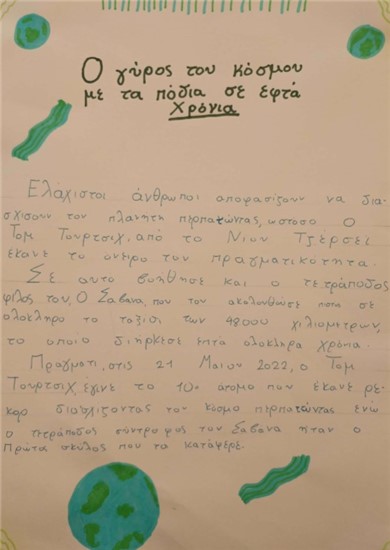 Ο γύρος του κόσμου
με τα πόδια σε εφτά
χρόνια
Ελαχιστοι άνθρωποι αποφασίζουν να δια-
σχισουν τον πλανητη περπατώντας, ωστοσο ο
Τομ Τουρτσιχ, από το Νιου Τζέρσεϊ
έκανε το όνειρο του πραγματικότητα.
Σε αυτο βοήθησε και ο τετράποδος
φίλος του, Ο Σαβανα, που τον ακολουθώσε πιστα σε
ολοκληρο το ταξιδι των 48000 χιλιομετρων,
το οποιο διήρκεσε επτα ολοκληρα χρόνια.
Πραγματι, στις 21 Μαιου 2022, ο Τομ
Τουρτσιχ εγινε το 10ο άτομο που έκανε ρε-
κορ διασχιζοντας τον κόσμο περπατώντας ενώ
ο τετράποδος σύντροφος του Σαβανα ήταν ο
Πρώτα σκύλος που τα κατάφερε.